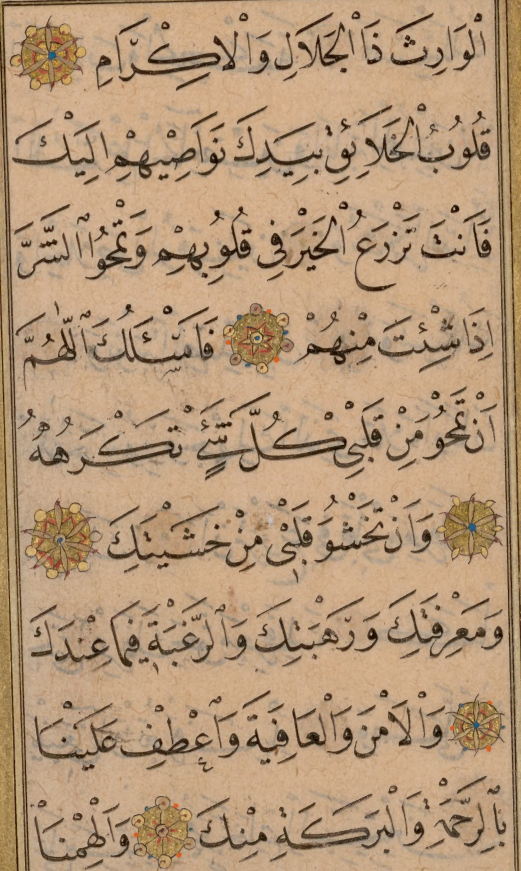 الْوَارِثَ ذَا الْجَلَالِ وَالْاِكْرَامِ
قُلُوبُ الْخَلَائِقِ بِيَدِكَ نَوَاصِيهِمْ اِلَيْكَ
فَاَنْتَ تَزْرَعُ الْخَيْرَ فِي قُلُوبِهِمْ وَتَمْحُوا الشَّرَّ
اِذَا شِئْتَ مِنْهُمْ فَاَسْئَلُكَ اللّٰهُمَّ
اَنْ تَمْحُوَ مِنْ قَلْبِي كُلَّ شَيْءٍ تَكْرَهُهُ
وَاَنْ تَحْشُوَ قَلْبِي مِنْ خَشْيَتِكَ
وَمَعْرِفَتِكَ وَرَهْبَتِكَ وَالرَّغْبَةَ فِيمَا عِنْدَكَ
وَالْاَمْنَ وَالْعَافِيَةَ وَاعْطِفْ عَلَيْنَا
بِالرَّحْمَةِ وَالْبَرَكَةِ مِنْكَ وَاَلْهِمْنَا